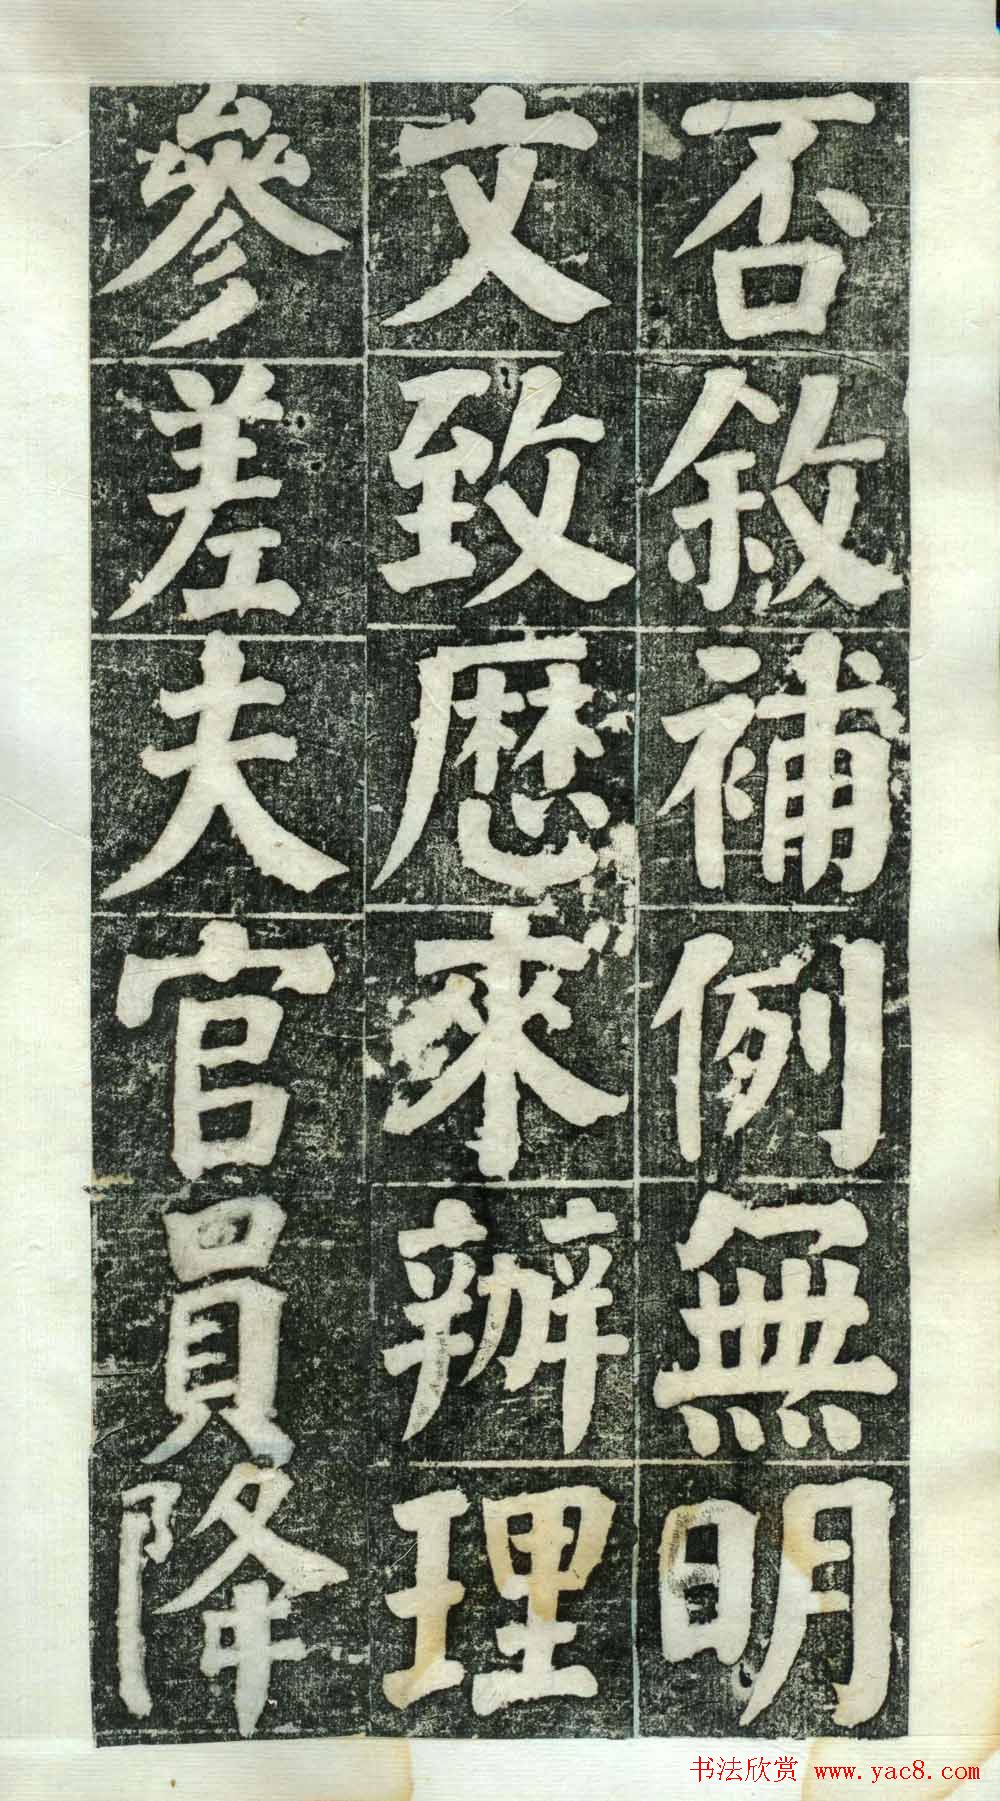 否敘補例無明
文致歷來辦理
參差夫官員降
书法欣赏 www.yac8.com